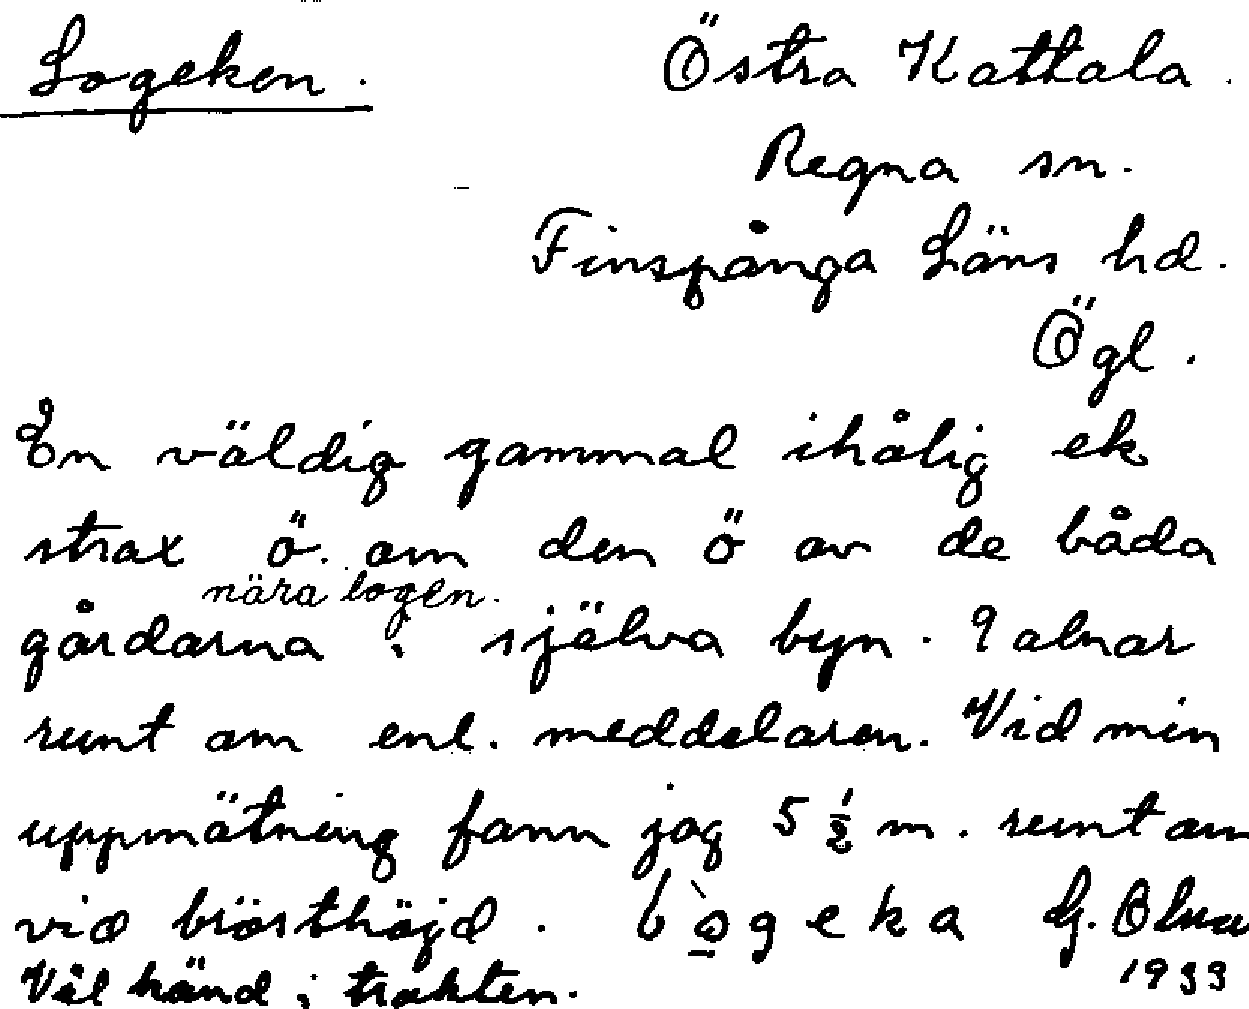 Logeken.
Östra Kattala.
Regna sn.
Finspånga Läns hd.
Ögl.
En väldig gammal ihålig ek
strax ö. om den ö av de båda
nära logen.
gårdarna i själva byn. 9 alnar
runt om enl. meddelaren. Vid min
uppmätning fann jag 5 1/2 m. runt om
vid brösthöjd. lògeka G.
Väl känd i trakten. 1933